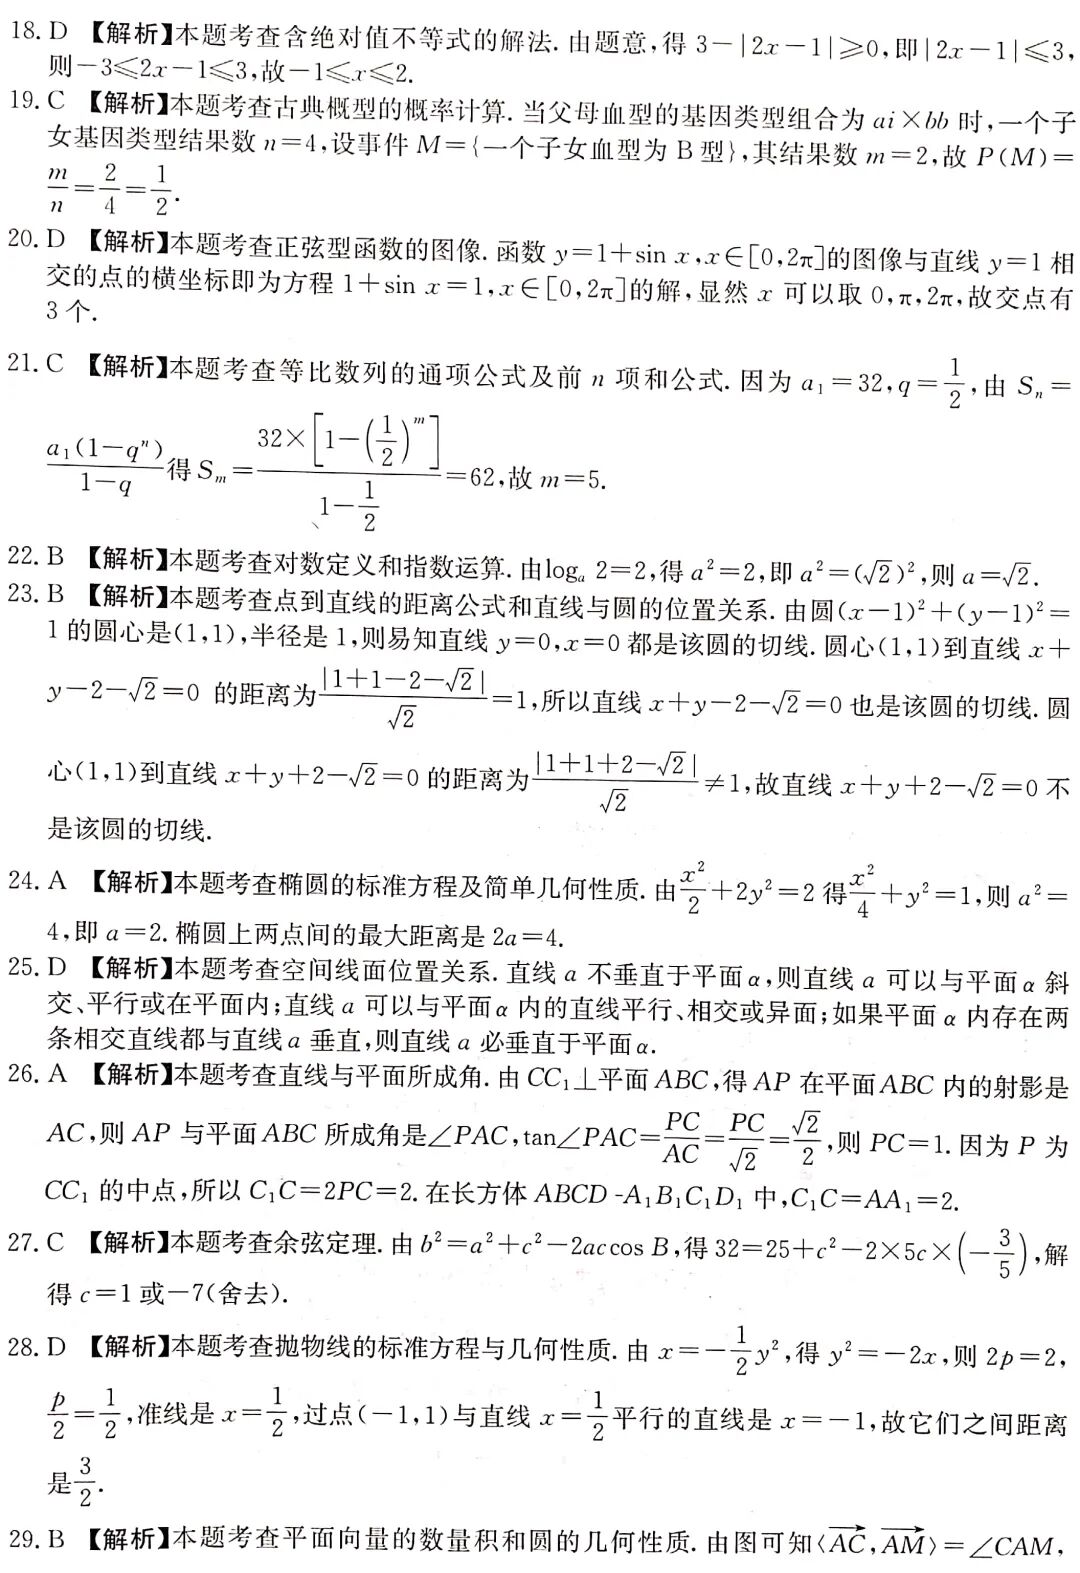 18. D 【解析】本题考查含绝对值不等式的解法. 由题意,得 3-|2x-1|≥0,即|2x-1|≤3,
则-3≤2x-1≤3,故-1≤x≤2.
19. C 【解析】本题考查古典概型的概率计算. 当父母血型的基因类型组合为 ai×bb 时,一个子
女基因类型结果数 n=4,设事件 M={一个子女血型为 B 型},其结果数 m=2,故 P(M)=
m/n=2/4=1/2.
20. D 【解析】本题考查正弦型函数的图像. 函数 y=1+sin x,x∈[0,2π]的图像与直线 y=1 相
交的点的横坐标即为方程 1+sin x=1,x∈[0,2π]的解,显然 x 可以取 0,π,2π,故交点有
3 个.
21. C 【解析】本题考查等比数列的通项公式及前 n 项和公式. 因为 a₁=32,q=1/2,由 Sₙ=
a₁(1-qⁿ)/(1-q)得 Sₘ=32×[1-(1/2)ᵐ]/(1-1/2)=62,故 m=5.
22. B 【解析】本题考查对数定义和指数运算. 由logₐ 2=2,得 a²=2,即 a²=(√2)²,则 a=√2.
23. B 【解析】本题考查点到直线的距离公式和直线与圆的位置关系. 由圆(x-1)²+(y-1)²=
1 的圆心是(1,1),半径是 1,则易知直线 y=0,x=0 都是该圆的切线. 圆心(1,1)到直线 x+
y-2-√2=0 的距离为|1+1-2-√2|/√2=1,所以直线 x+y-2-√2=0 也是该圆的切线. 圆
心(1,1)到直线 x+y+2-√2=0 的距离为|1+1+2-√2|/√2≠1,故直线 x+y+2-√2=0 不
是该圆的切线.
24. A 【解析】本题考查椭圆的标准方程及简单几何性质. 由x²/2+2y²=2 得x²/4+y²=1,则 a²=
4,即 a=2. 椭圆上两点间的最大距离是 2a=4.
25. D 【解析】本题考查空间线面位置关系. 直线 a 不垂直于平面α,则直线 a 可以与平面α 斜
交、平行或在平面内;直线 a 可以与平面α 内的直线平行、相交或异面;如果平面 α 内存在两
条相交直线都与直线a 垂直,则直线 a 必垂直于平面α.
26. A 【解析】本题考查直线与平面所成角. 由 CC₁⊥平面 ABC,得 AP 在平面ABC 内的射影是
AC,则 AP 与平面ABC 所成角是∠PAC,tan∠PAC=PC/AC=PC/√2=√2/2,则 PC=1. 因为 P 为
CC₁ 的中点,所以 C₁C=2PC=2. 在长方体 ABCD-A₁B₁C₁D₁ 中,C₁C=AA₁=2.
27. C 【解析】本题考查余弦定理. 由 b²=a²+c²-2accos B,得 32=25+c²-2×5c×(-3/5),解
得 c=1 或-7(舍去).
28. D 【解析】本题考查抛物线的标准方程与几何性质. 由 x=-1/2y²,得 y²=-2x,则 2p=2,
p/2=1/2,准线是 x=1/2,过点(-1,1)与直线 x=1/2平行的直线是 x=-1,故它们之间距离
是3/2.
29. B 【解析】本题考查平面向量的数量积和圆的几何性质. 由图可知⟨A⃗C⃗,A⃗M⃗⟩=∠CAM,